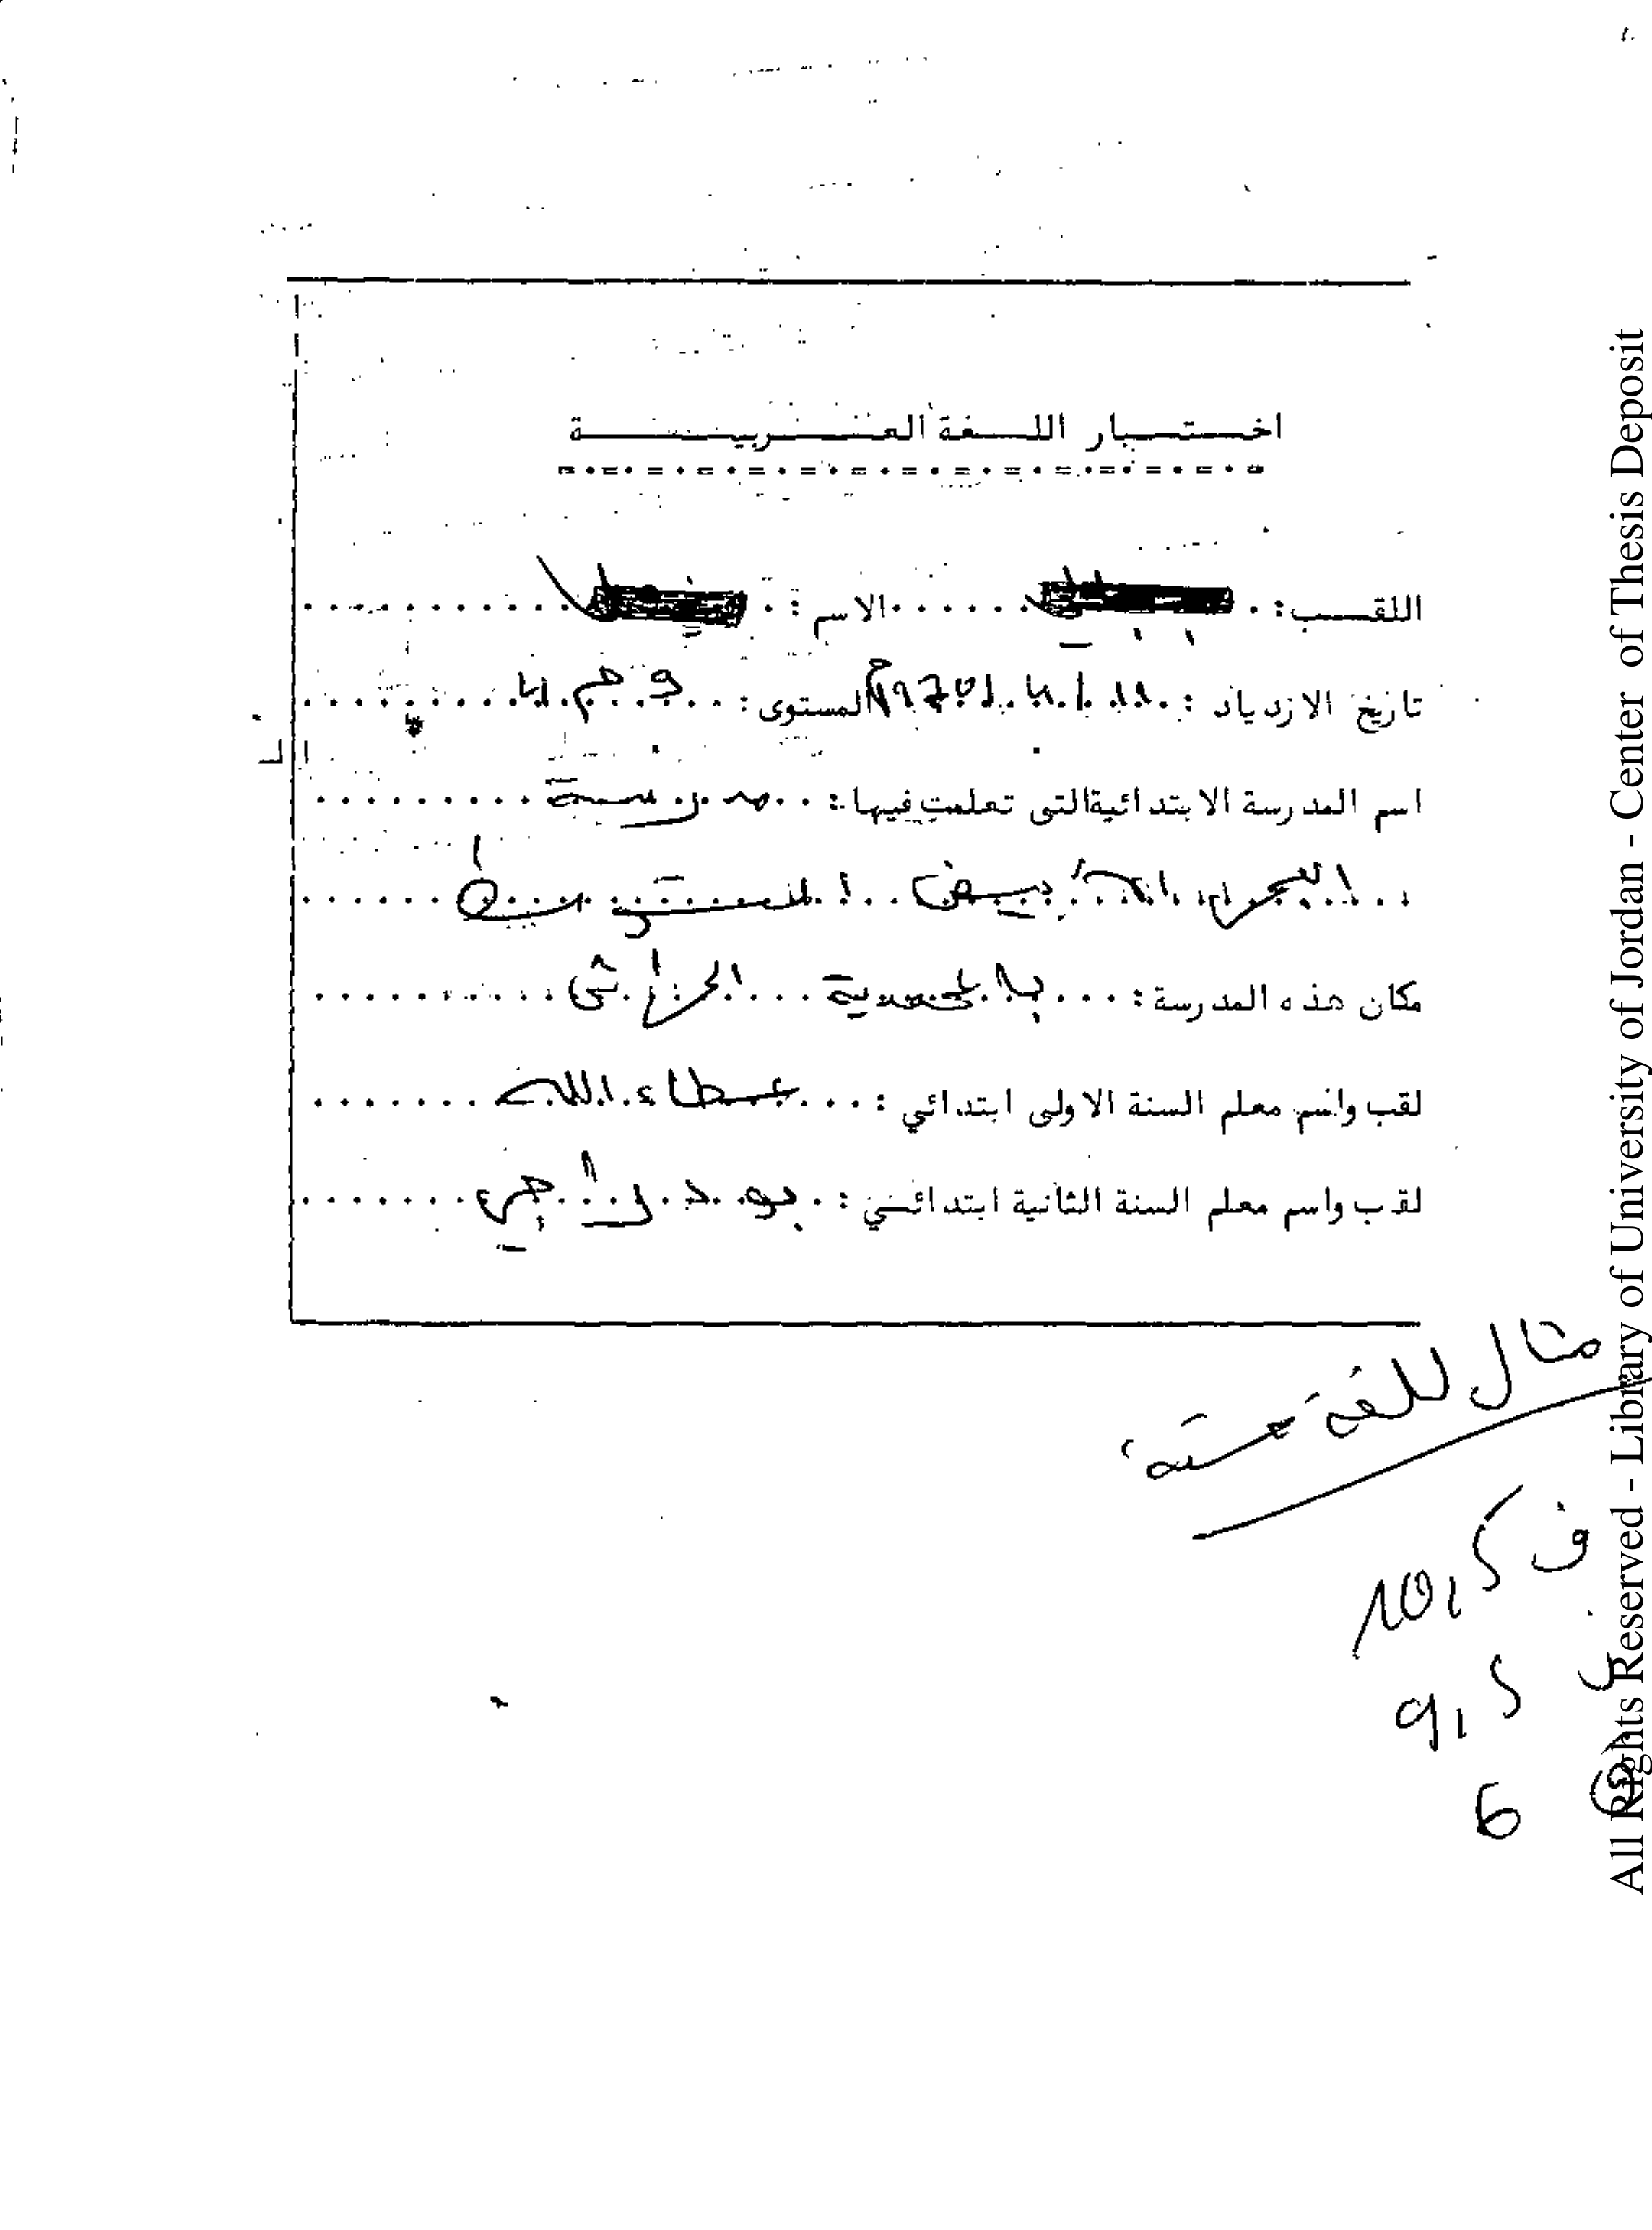 اختبار اللغة العربية
اللقب: الاسم:
تاريخ الازدياد: المستوى:
اسم المدرسة الابتدائية التى تعلمت فيها: مدرسة
البحر الأبيض المتوسط
مكان هذه المدرسة: بالمحمدية الحراش
لقب واسم معلم السنة الاولى ابتدائي: عطاء الله
لقب واسم معلم السنة الثانية ابتدائي: بودراجي
مثال للغة حسنة
ف 10,5
9,5
6
All Rights Reserved - Library of University of Jordan - Center of Thesis Deposit